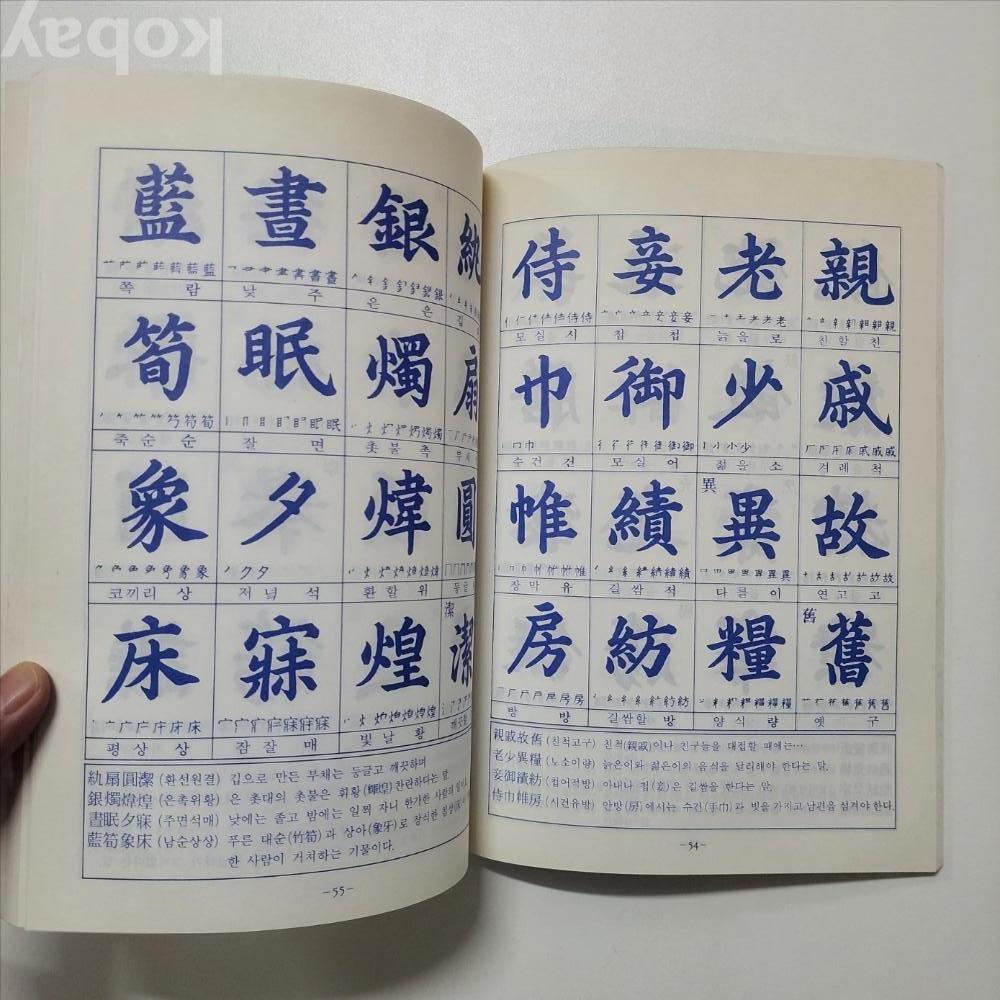 親
친할 친
戚
겨레 척
故
연고 고
舊
舊
옛 구
老
늙을 로
少
젊을 소
異
異
다를 이
糧
양식 량
妾
첩 첩
御
모실 어
績
길쌈 적
紡
길쌈할 방
侍
모실 시
巾
수건 건
帷
장막 유
房
방 방
親戚故舊 (친척고구) 친척(親戚)이나 친구들을 대접할 때에는…
老少異糧 (노소이량) 늙은이와 젊은이의 음식을 달리해야 한다는 말.
妾御績紡 (첩어적방) 아내나 첩(妾)은 길쌈을 한다는 말.
侍巾帷房 (시건유방) 안방(房)에서는 수건(手巾)과 빗을 가지고 남편을 섬겨야 한다.
-54-
紈
扇
圓
潔
潔
銀
은 은
燭
촛불 촉
煒
환할 위
煌
빛날 황
晝
낮 주
眠
잘 면
夕
저녁 석
寐
잠잘 매
藍
쪽 람
筍
죽순 순
象
코끼리 상
床
평상 상
紈扇圓潔 (환선원결) 깁으로 만든 부채는 둥글고 깨끗하며
銀燭煒煌 (은촉위황) 은 촛대의 촛불은 휘황(輝煌)찬란하다는 말.
晝眠夕寐 (주면석매) 낮에는 졸고 밤에는 일찍 자니 한가한 사람의 일이고
藍筍象床 (남순상상) 푸른 대순(竹筍)과 상아(象牙)로 장식한 침상
한 사람이 거처하는 기물이다.
-55-
kobay